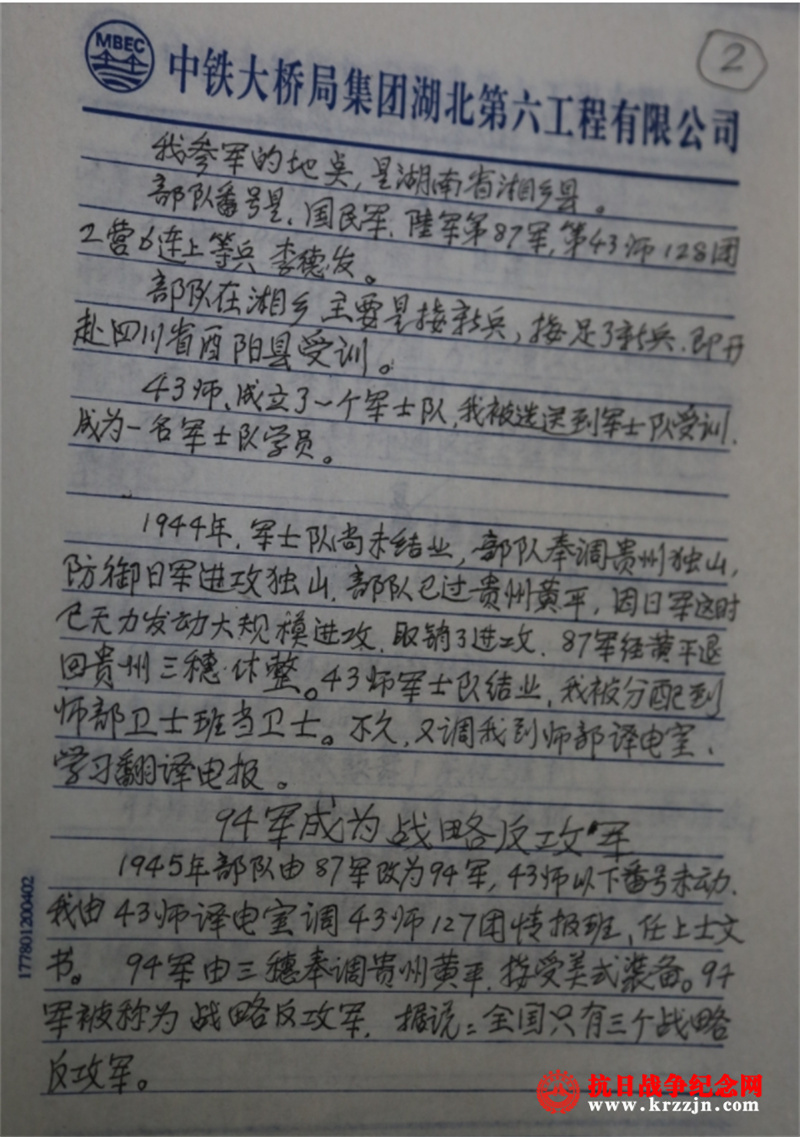 MBEC
2
中铁大桥局集团湖北第六工程有限公司
我参军的地点,是湖南省湘乡县。
部队番号是,国民军,陸军第87军,第43师128团
2营6连上等兵李德发。
部队在湘乡主要是接新兵,接足了新兵,即开
赴四川省酉阳县受训。
43师,成立了一个军士队,我被选送到军士队受训,
成为一名军士队学员。
1944年,军士队尚未结业,部队奉调贵州独山,
防御日军进攻独山,部队已过贵州黄平,因日军这时
已无力发动大规模进攻,取销了进攻,87军经黄平退
回贵州三穗·休整。43师军士队结业,我被分配到
师部卫士班当卫士。不久,又调我到师部译电室,
学习翻译电报。
94军成为战略反攻军
1945年部队由87军改为94军,43师以下番号未动,
我由43师译电室调43师127团情报班,任上士文
书。94军由三穗奉调贵州黄平,接受美式装备。94
军被称为战略反攻军,据说:全国只有三个战略
反攻军。
177801200402
抗日战争纪念网
www.krzzjn.com